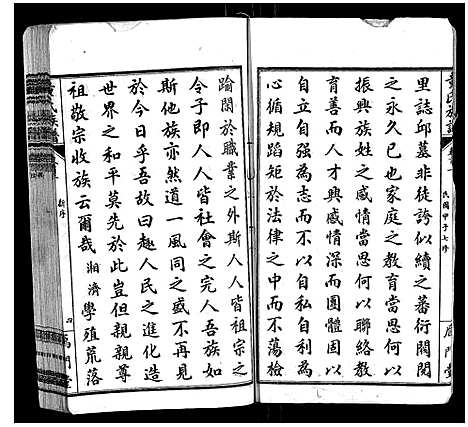 里誌邱墓非徒誇似續之蕃衍閥閱
之永久已也家庭之教育當思何以
振興族姓之感情當思何以聯絡教
育善而人才興感情深而團體固以
自立自強為志而不以自私自利為
心循規蹈矩於法律之中而不蕩檢
踰閑於職業之外斯人人皆祖宗之
令子即人人皆社會之完人吾族如
斯他族亦然道一風同之盛不再見
於今日乎吾故曰趨人民之進化造
世界之和平莫先於此豈但親親尊
祖敬宗收族云爾哉
湘濟學殖荒落
民國甲子七修
新序
四